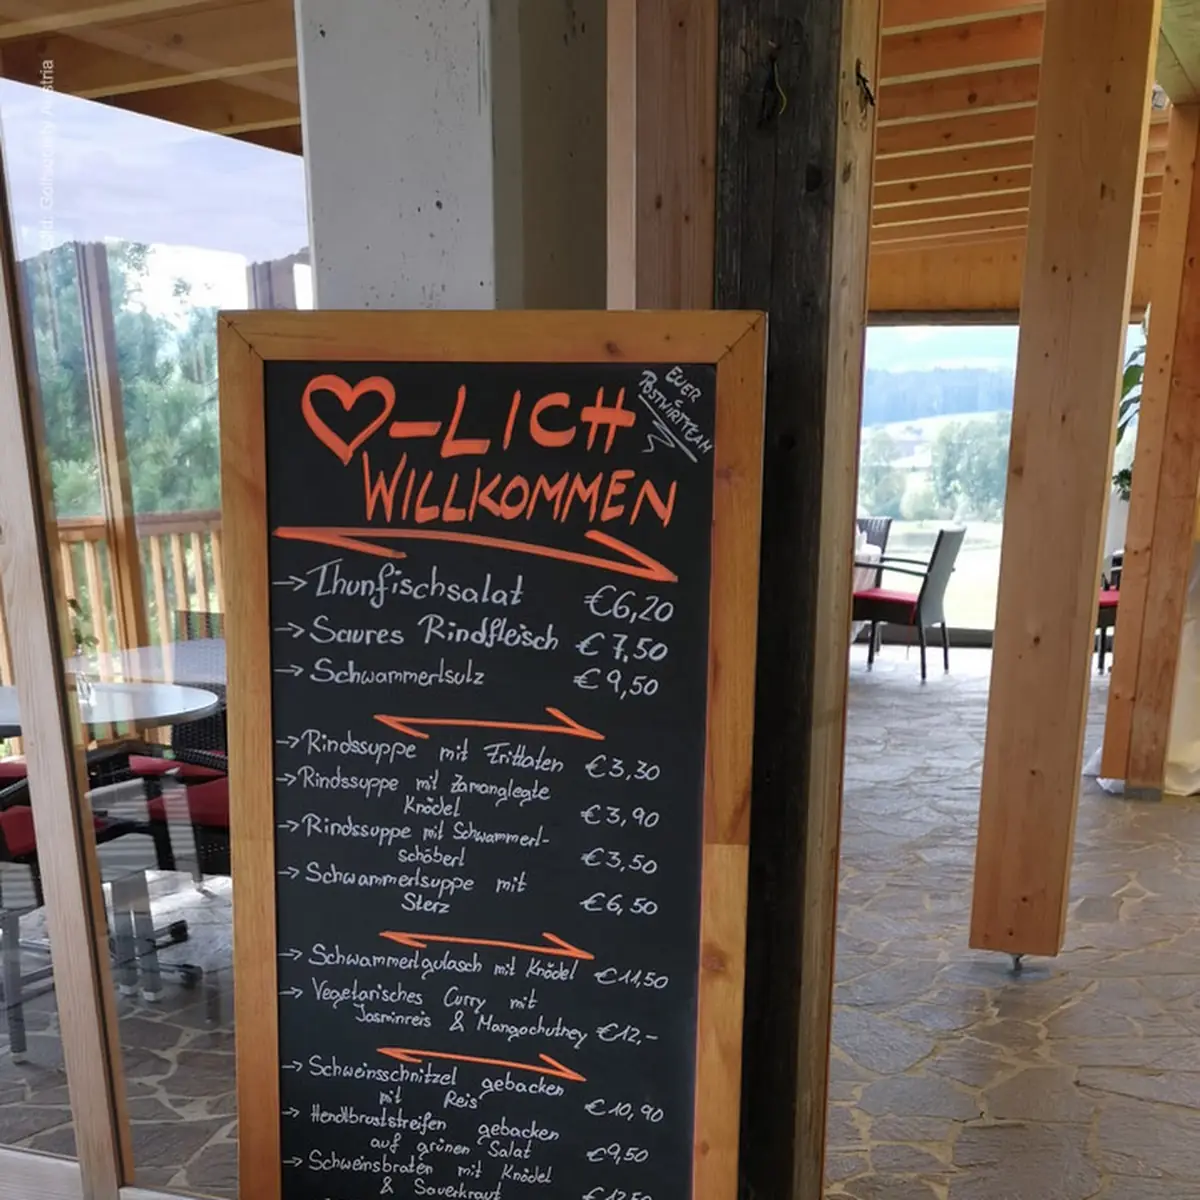 ♥-LICH
WILLKOMMEN
EUER
POSTWIRTTEAM
→ Thunfischsalat €6,20
→ Saures Rindfleisch €7,50
→ Schwammerlsulz €9,50
→ Rindssuppe mit Frittaten €3,30
→ Rindssuppe mit zamanglegte
Knödel €3,90
→ Rindssuppe mit Schwammerl-
schöberl €3,50
→ Schwammerlsuppe mit
Sterz €6,50
→ Schwammerlgulasch mit Knödel €11,50
→ Vegetarisches Curry mit
Jasminreis & Mangochutney €12,-
→ Schweinsschnitzel gebacken
mit Reis €10,90
→ Hendlbruststreifen gebacken
auf grünen Salat €9,50
→ Schweinsbraten mit Knödel
& Sauerkraut €12,50